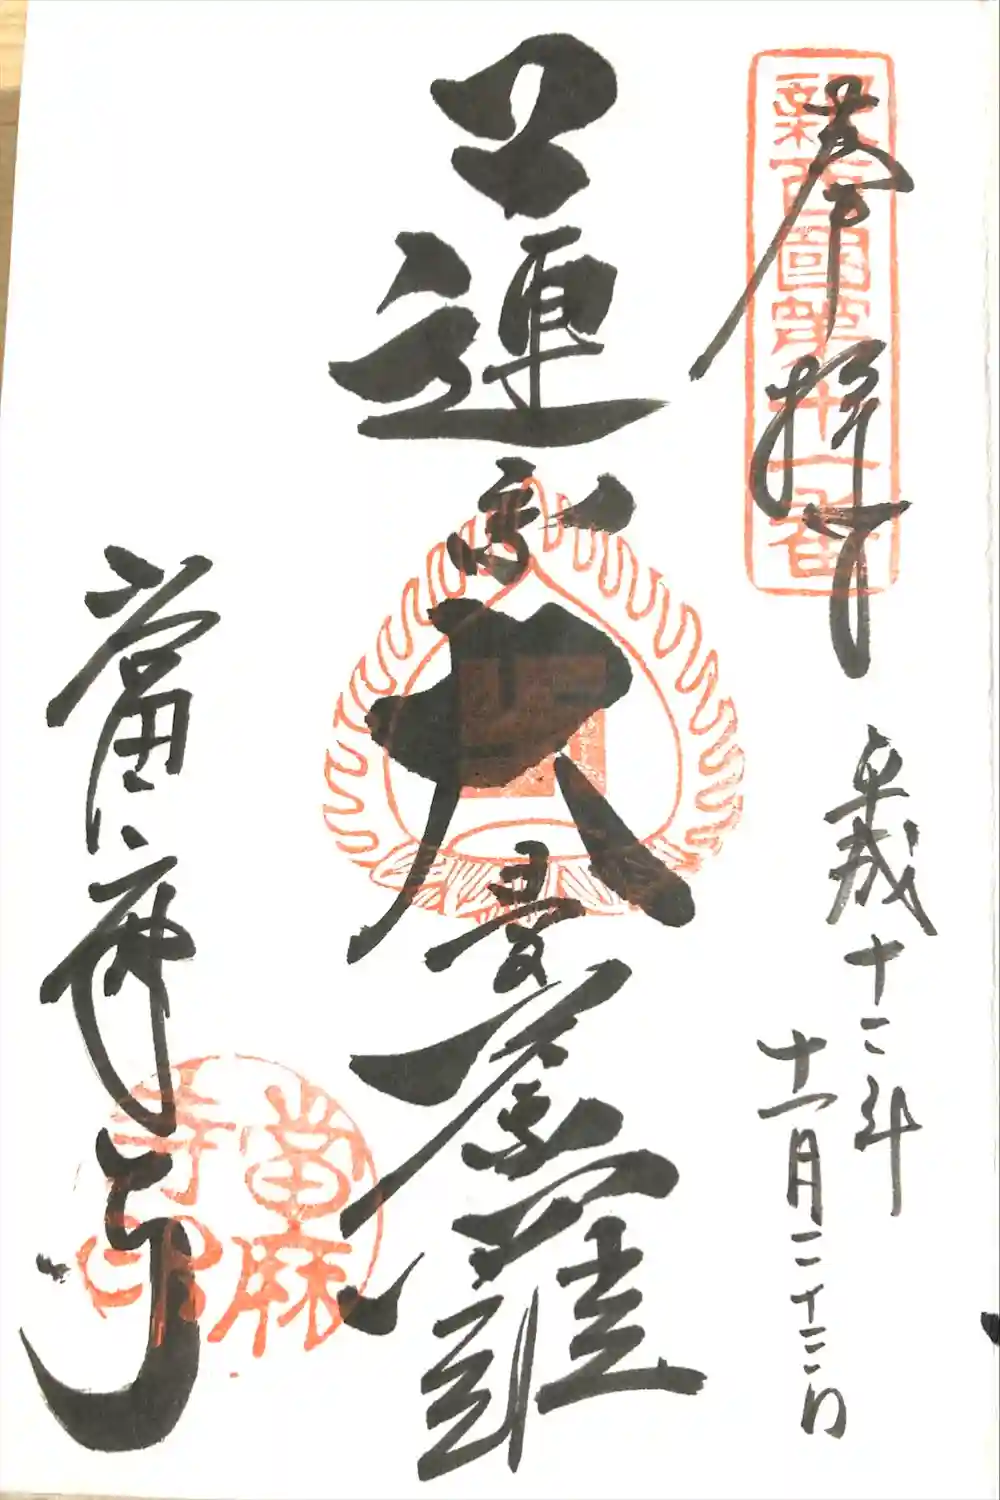 新西國第十一番
奉拝
平成十二年
十一月二十三日
蓮糸大曼荼羅
當麻寺
當麻寺印